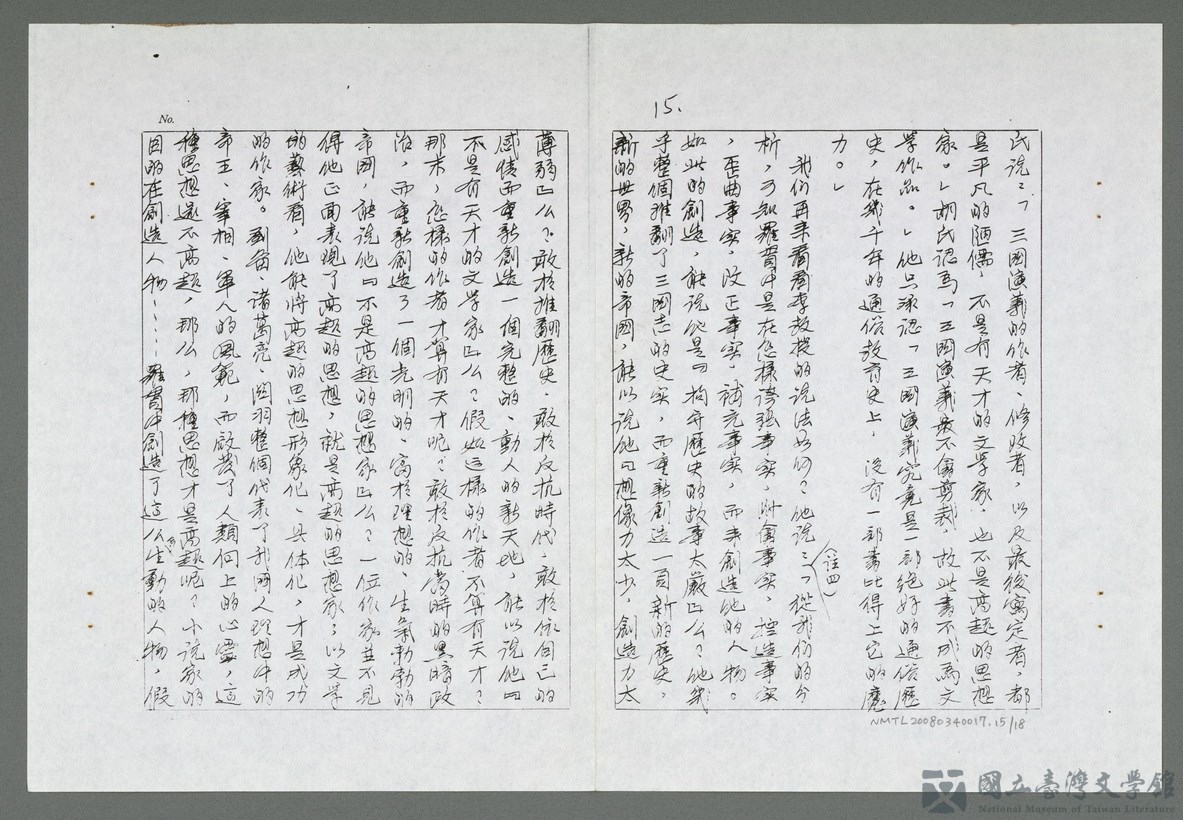 15.
民說：「三國演義的作者、修改者，以及最後寫定者，都
是平凡的陋儒，不是有天才的文學家，也不是高超的思想
家。」胡氏認為「三國演義最不會剪裁，故此書不成為文
學作品。」他只承認「三國演義究竟是一部絕好的通俗歷
史，在幾千年的通俗教育史上，沒有一部書比得上它的魔
力。」
我们再来看看李教授的說法如何？他說：「從我们的分
（註四）
析，可知羅貫中是在怎樣誇張事实，附會事实，揑造事实
，歪曲事实，改正事实，補充事实，而来創造他的人物。
如此的創造，能說他是『拘守歷史的故事太嚴』么？他幾
乎整個推翻了三國志的史实，而重新創造一頁新的歷史，
新的世界，新的帝國，能以說他『想像力太少，創造力太
No.
薄弱』么？敢於推翻歷史，敢於反抗時代，敢於依自己的
感情而重新創造一個完整的、動人的新天地，能以說他『
不是有天才的文学家』么？假如这樣的作者不算有天才？
那末，怎樣的作者才算有天才呢？敢於反抗當時的黑暗政
治，而重新創造了一個光明的、富於理想的、生氣勃勃的
帝國，能說他『不是高超的思想家』么？一位作家並不見
得他正面表現了高超的思想，就是高超的思想家；以文学
的藝術看，他能將高超的思想形象化、具体化，才是成功
的作家。劉备、諸葛亮、関羽整個代表了我國人理想中的
帝王、宰相、軍人的風範，而啟發了人類向上的心靈，這
種思想還不高超，那么，那種思想才是高超呢？小說家的
目的在創造人物……羅貫中創造了這么生動的人物，假
NMTL20080340017.15/18
國立臺灣文學館
National Museum of Taiwan Literature